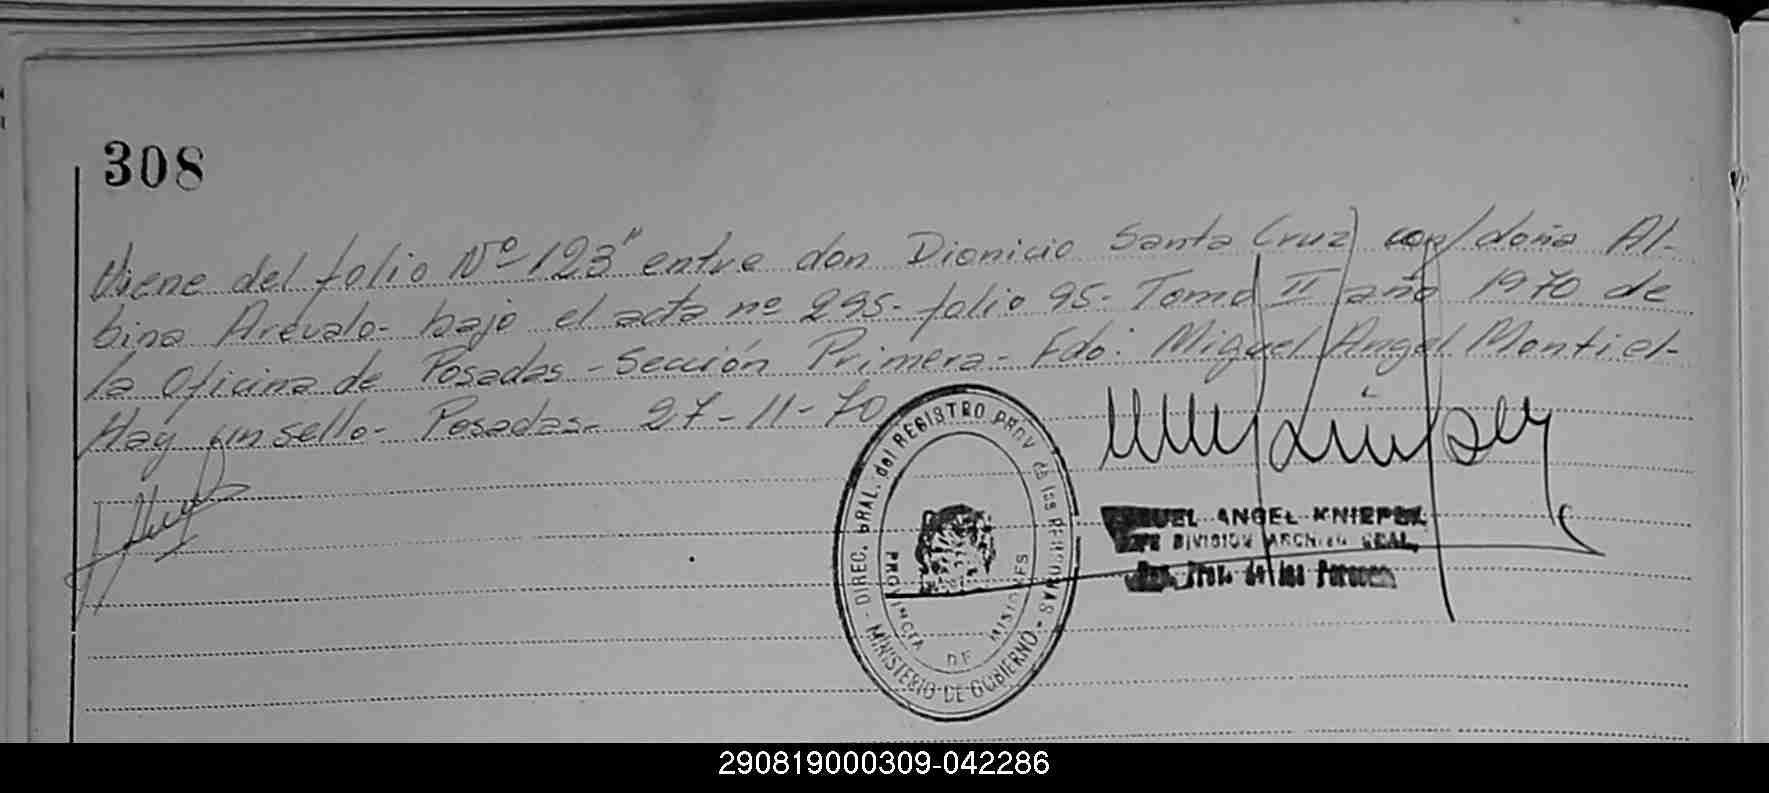 308
Viene del folio Nº 123" entre don Dionicio Santa Cruz con doña Al-
bina Arévalo- bajo el acta nº 295- folio 95- Tomo II año 1970 de
la Oficina de Posadas - Sección Primera- Fdo: Miguel Angel Montiel-
Hay un sello- Posadas- 27-11-70
DIREC. GRAL. del REGISTRO PROV de las PERSONAS - MINISTERIO DE GOBIERNO -
PROVINCIA DE MISIONES
ANGEL
DIVISION ARCHIVO GRAL.
Prov. de las Personas
290819000309-042286